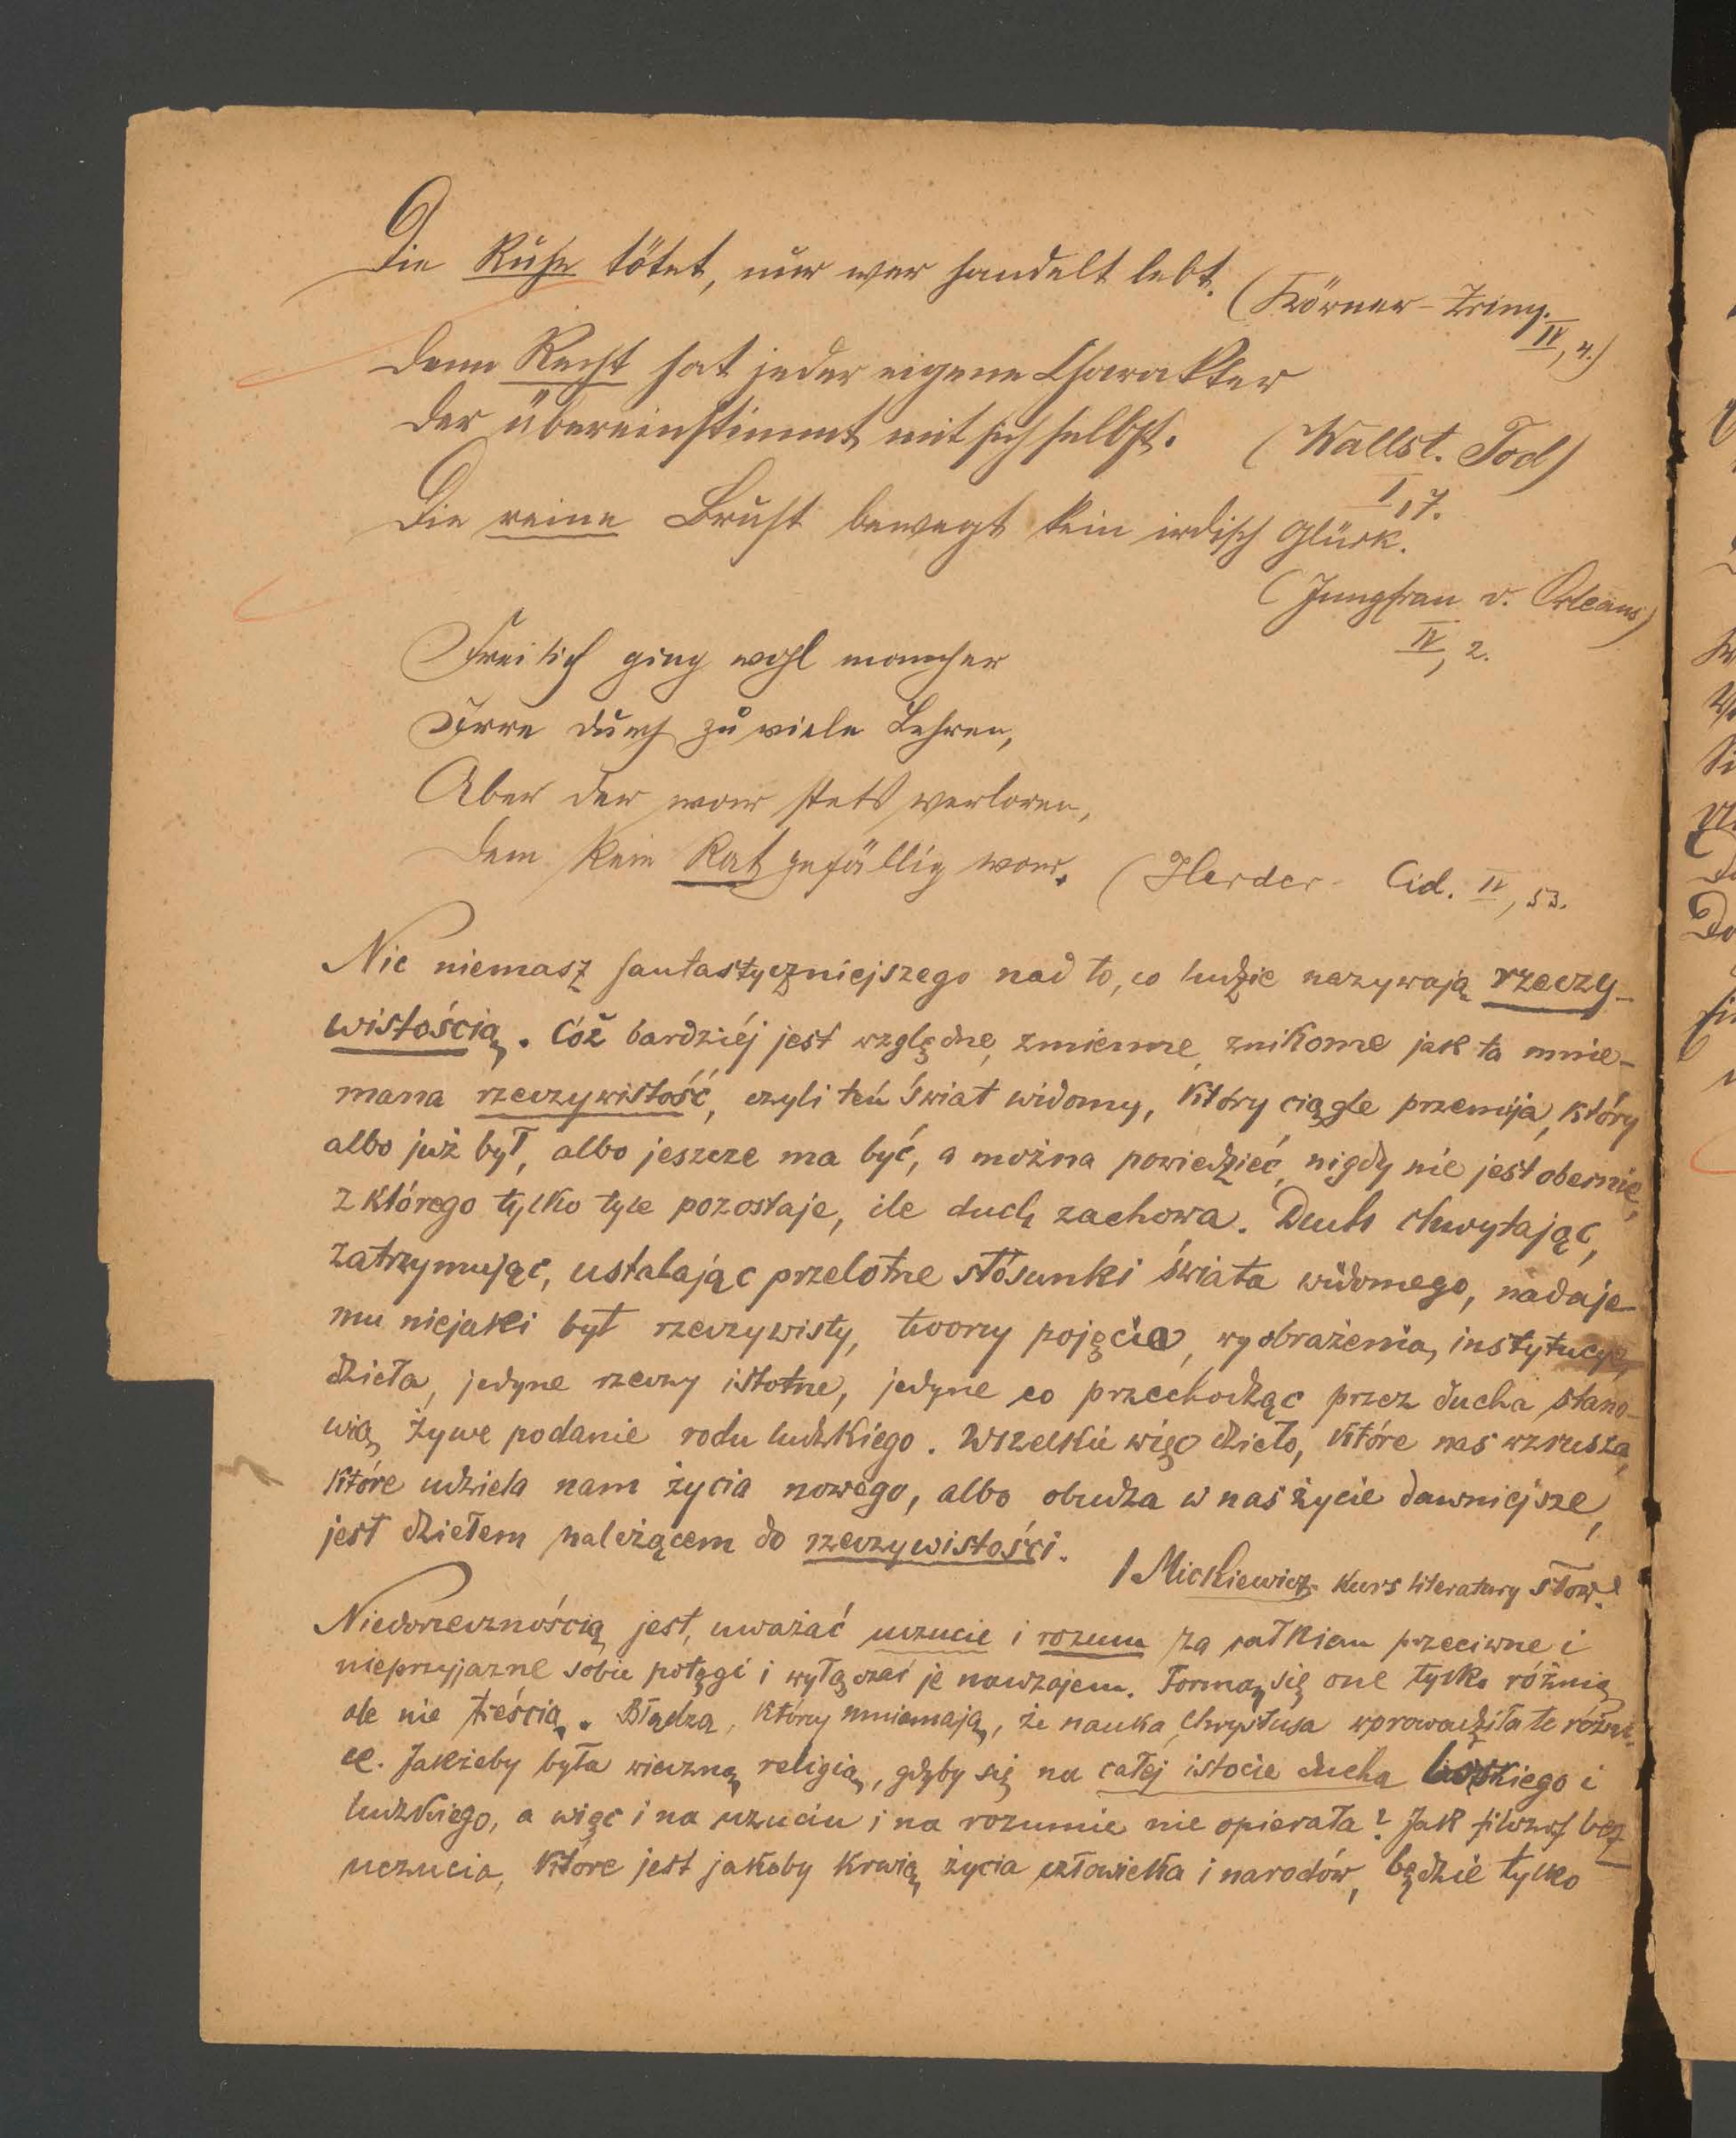 Die Ruhe tötet, nur wer handelt lebt.
(Körner - Zriny.
IV, 4.)
Denn Recht hat jeder eigene Charakter
der übereinstimmt mit sich selbst. (Wallst. Tod)
I, 7.
Die reine Brust bewegt kein irdisch Glück.
(Jungfrau v. Orleans)
IV, 2.
Freilich ging wohl mancher
Irre durch zu viele Lehren,
Aber der war stets verloren,
Dem kein Rat gefällig war. (Herder - Cid. IV, 53.
Nic niemasz fantastyczniejszego nad to, co ludzie nazywają rzeczy-
wistością. Cóż bardziéj jest względne, zmienne, znikome jak ta mnie-
mana rzeczywistość, czyli teń świat widomy, który ciągle przemija, który
albo już był, albo jeszcze ma być, a można powiedzieć, nigdy nie jest obecnie,
z którego tylko tyle pozostaje, ile duch zachowa. Duch chwytając,
zatrzymując, ustalając przelotne stósunki świata widomego, nadaje
mu niejaki byt rzeczywisty, tworzy pojęcia, wyobrażenia, instytucye,
dzieła, jedyne rzeczy istotne, jedyne co przechodząc przez ducha stano-
wią żywe podanie rodu ludzkiego. Wszelkie więc dzieło, które nas wzrusza,
które udziela nam życia nowego, albo obudza w nas życie dawniejsze,
jest dziełem należącem do rzeczywistości.
/ Mickiewicz Kurs literatury słow.
Niedorzecznością jest, uważać uczucie i rozum za całkiem przeciwne i
nieprzyjazne sobie potęgi i wyłączać je nawzajem. Formą się one tylko różnią
ale nie treścią. Błądzą, którzy mniemają, że nauka Chrystusa wprowadziła te różni-
ce. Jakżeby była wieczną religią, gdyby się na całej istocie ducha boskiego i
ludzkiego, a więc i na uczuciu i na rozumie nie opierała? Jak filozof bez
uczucia, które jest jakoby krwią życia człowieka i narodów, będzie tylko